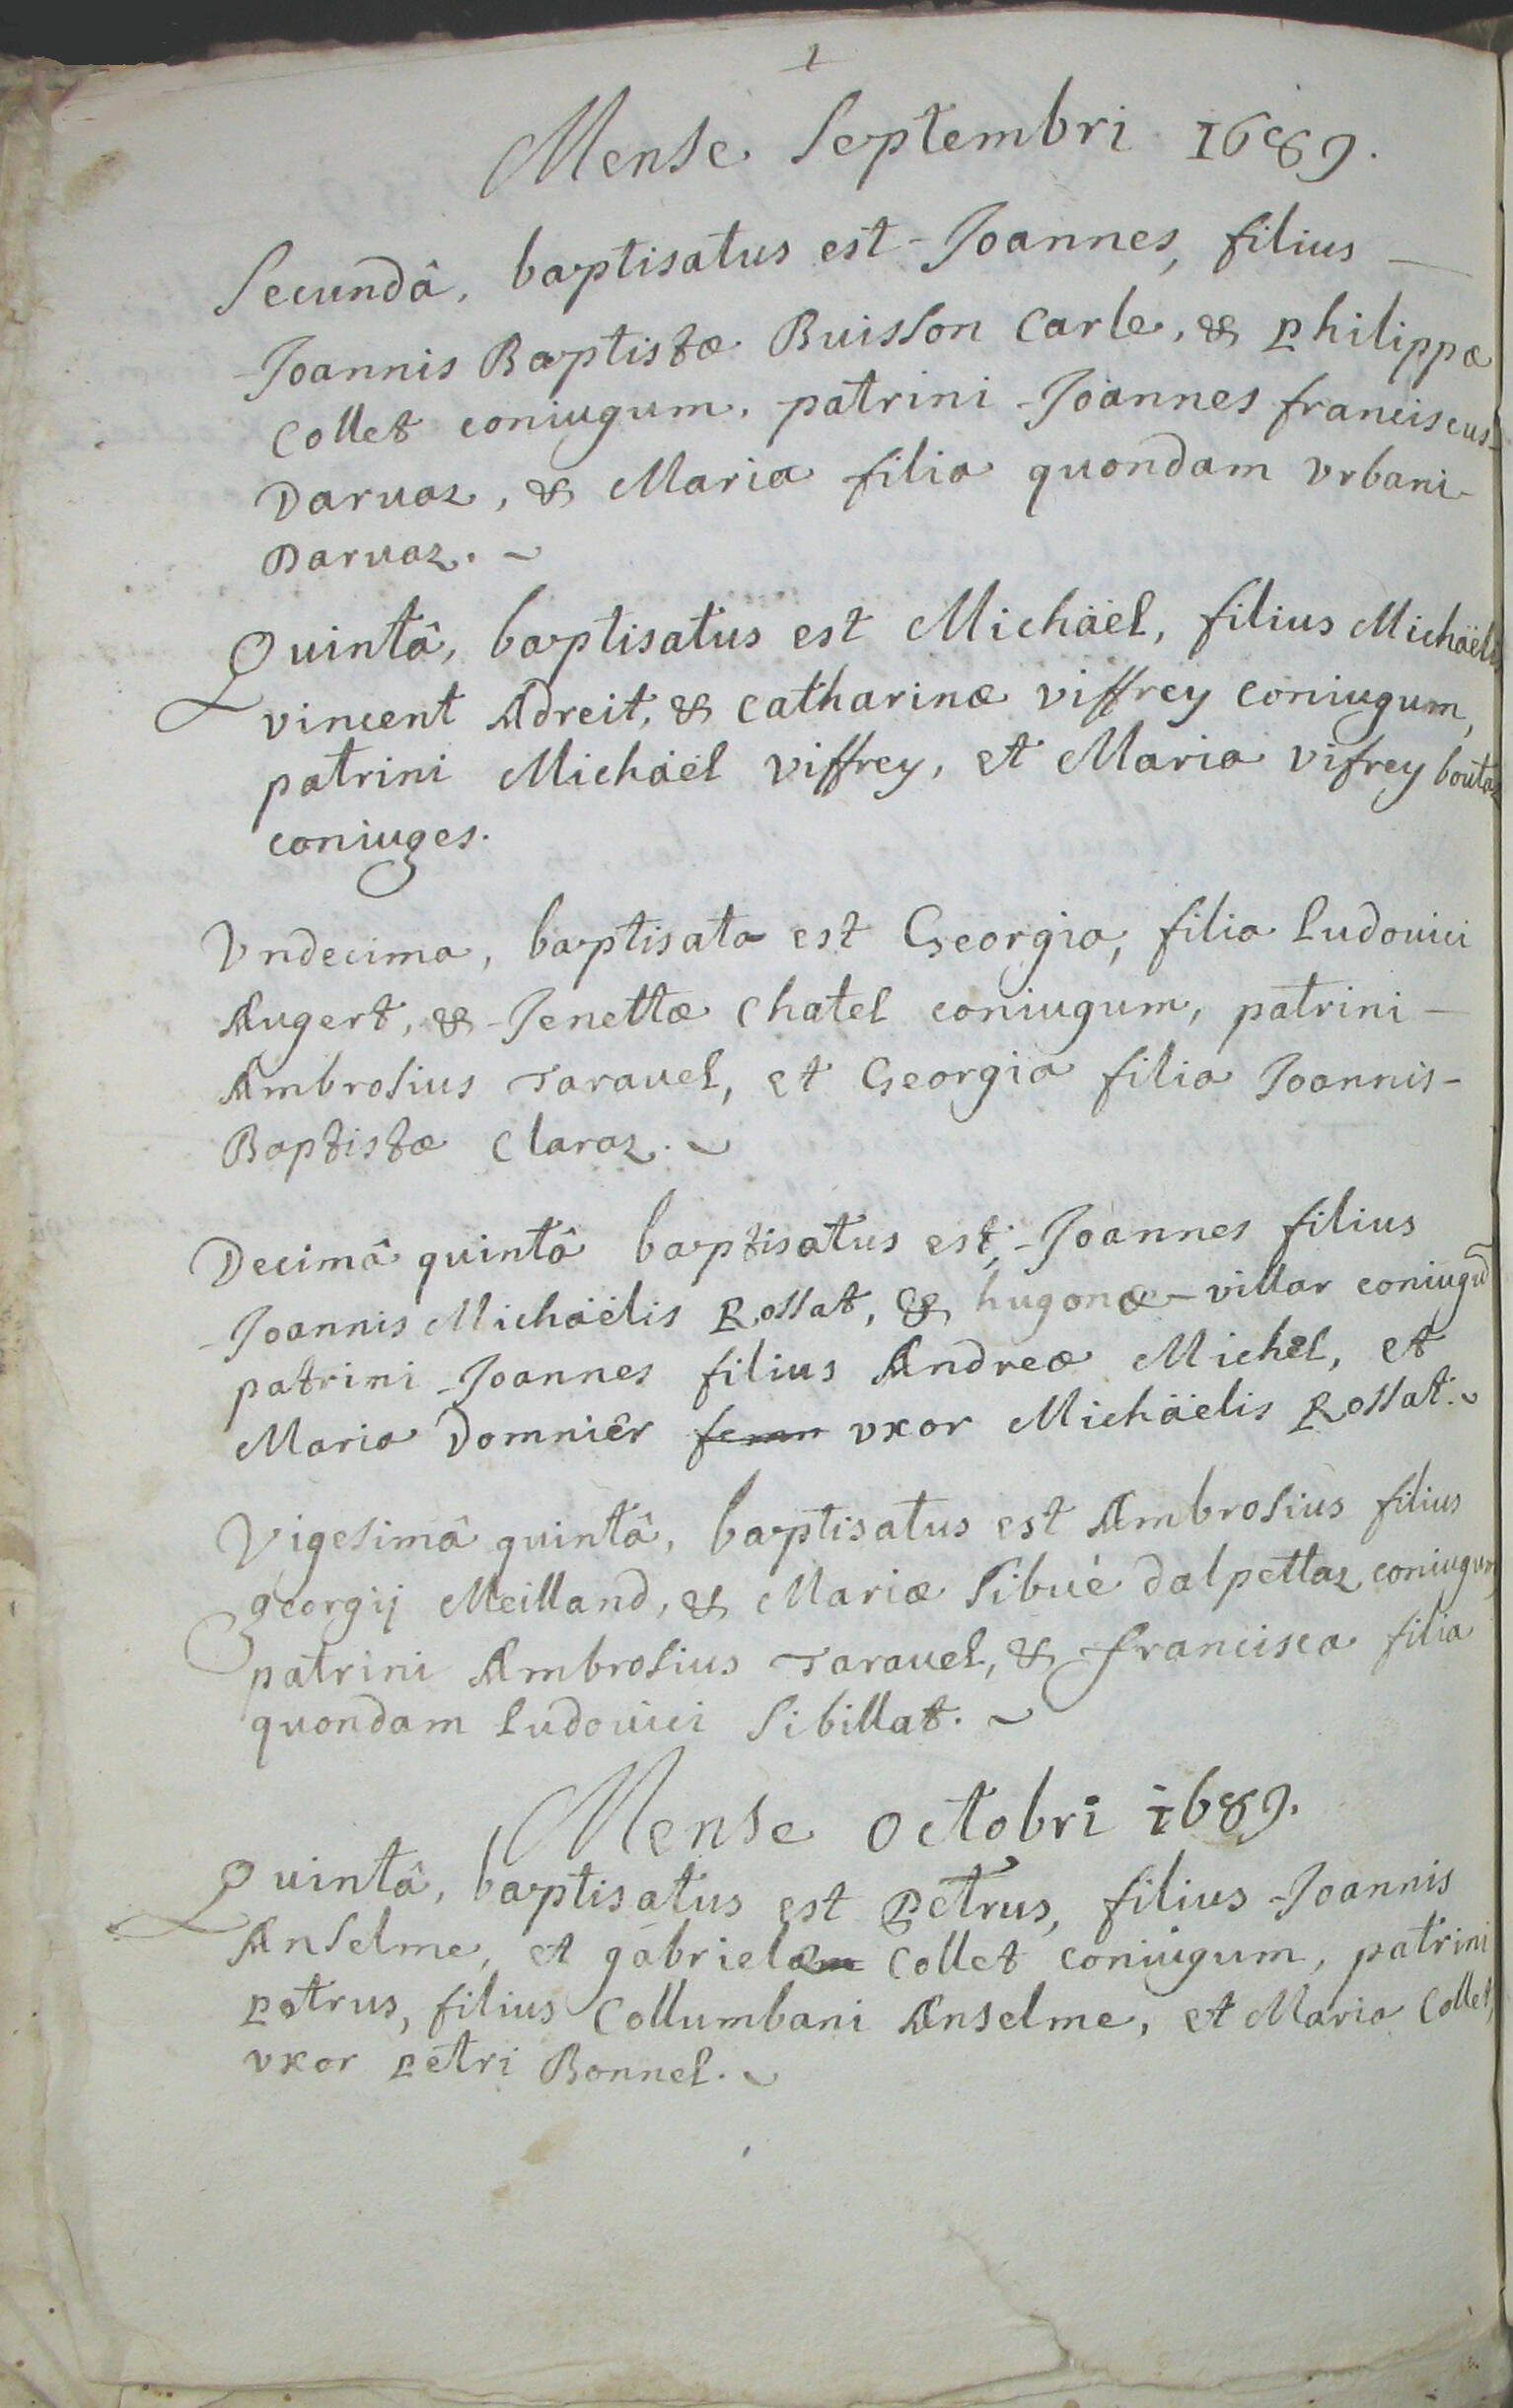 1
Mense Septembri 1689.
Secundâ, baptisatus est Joannes, filius
Joannis Baptistæ Buisson Carle, & philippæ
Collet coniugum, patrini Joannes franciscus
Daruaz, & Maria filia quondam vrbani
Daruaz.
Quintâ, baptisatus est Michäel, filius Michäelis
vincent Adreit, & catharinæ viffrey coniugum,
patrini Michäel viffrey, et Maria vifrey boutaz
coniuges.
Vndecima, baptisata est Georgia, filia Ludouici
Augert, & Jenettæ Chatel coniugum, patrini
Ambrosius Tarauel, et Georgia filia Joannis
Baptistæ Claraz.
Decimâ quintâ baptisatus est, Joannes filius
Joannis Michäelis Rossat, & hugonæ villar coniugū
patrini Joannes filius Andreæ Michel, et
Maria Domnier femm vxor Michäelis Rossat.
Vigesimâ quintâ, baptisatus est Ambrosius filius
georgij Meilland, & Mariæ Sibué dalpettaz coniugum
patrini Ambrosius Tarauel, & francisca filia
quondam Ludouici Sibillat.
Mense Octobri 1689.
Quintâ, baptisatus est Petrus, filius Joannis
Anselme, et gabrielæ Collet coniugum, patrini
petrus, filius Collumbani Anselme, et Maria Collet,
vxor petri Bonnel.